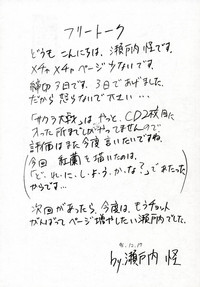 フリートーク
どうも こんにちは、瀬戸内 怪です。
メチャメチャ ページ少ないです。
締切3日です。3日であげました。
だから 怒らないで下さい…。
「サクラ大戦」は、やっと、CD2枚目に
入った所までしかやってませんので
評価はまた今度 言いたいですね。
今回 紅蘭を描いたのは、
「ど、れ、に、し、よ、う、か、な?」であたった
からです…。
次回があったら、今度は、もうチョット
がんばってページ増やしたい瀬戸内でした。
by.瀬戸内 怪